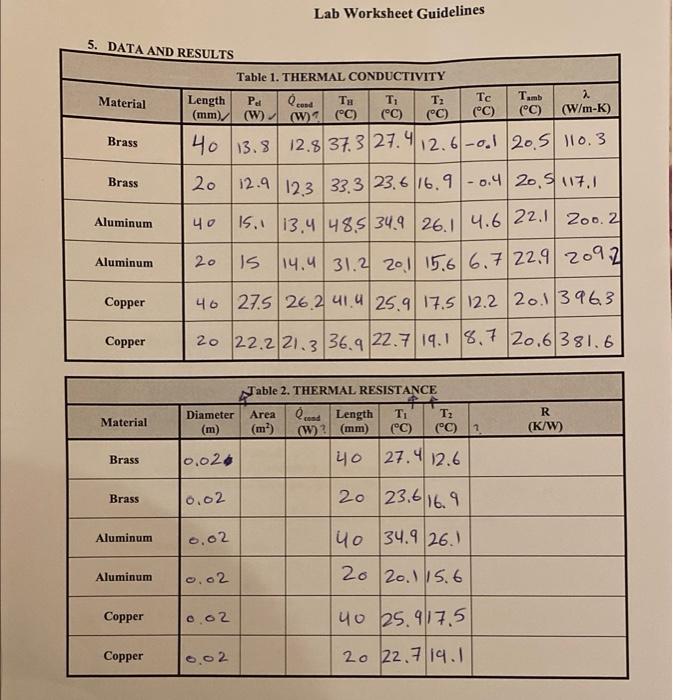 Lab Worksheet Guidelines
5. DATA AND RESULTS
Table 1. THERMAL CONDUCTIVITY
Material Length (mm) Pel (W) Q̇cond (W)? TH (°C) T1 (°C) T2 (°C) TC (°C) Tamb (°C) λ (W/m-K)
Brass 40 13.8 12.8 37.3 27.4 12.6 -0.1 20.5 110.3
Brass 20 12.9 12.3 33.3 23.6 16.9 -0.4 20.5 117.1
Aluminum 40 15.1 13.4 48.5 34.9 26.1 4.6 22.1 200.2
Aluminum 20 15 14.4 31.2 20.1 15.6 6.7 22.9 209.2
Copper 40 27.5 26.2 41.4 25.9 17.5 12.2 20.1 396.3
Copper 20 22.2 21.3 36.9 22.7 19.1 8.7 20.6 381.6
Table 2. THERMAL RESISTANCE
Material Diameter (m) Area (m²) Q̇cond (W)? Length (mm) T1 (°C) T2 (°C) ? R (K/W)
Brass 0.02 40 27.4 12.6
Brass 0.02 20 23.6 16.9
Aluminum 0.02 40 34.9 26.1
Aluminum 0.02 20 20.1 15.6
Copper 0.02 40 25.9 17.5
Copper 0.02 20 22.7 19.1